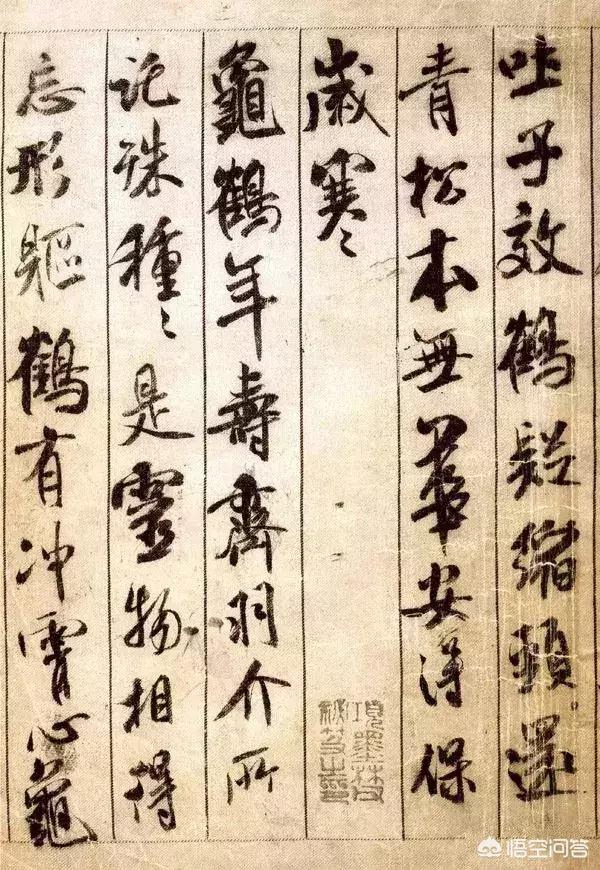 吐子效鶴疑縮頸還
青松本無華安得保
歲寒
龜鶴年壽齊羽介所
託殊種〻是靈物相得
忘形軀鶴有沖霄心龜
項墨林父
祕笈之印
悟空问答